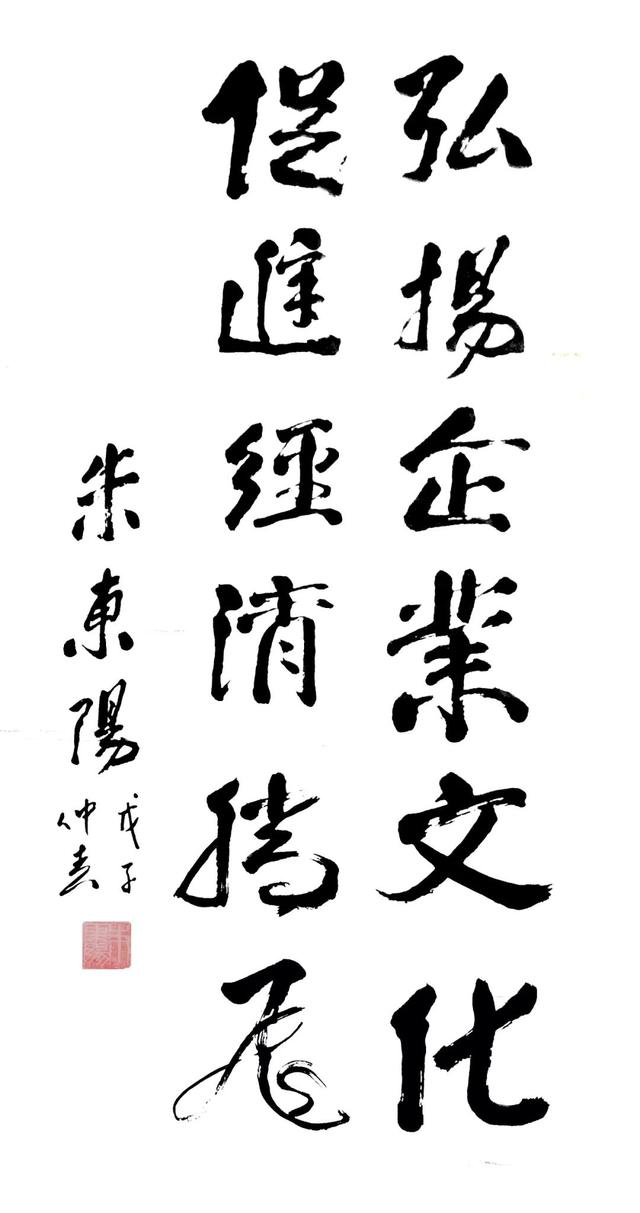 弘揚企業文化
促進經濟騰飛
朱東陽
戊子
仲春